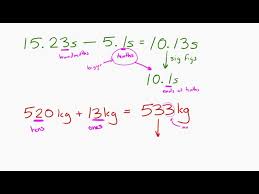 15.23s — 5.1s = 10.13s
hundredths
bigger
tenths
sig figs
10.1s
ends at tenths
520kg + 13kg = 533kg
tens
ones